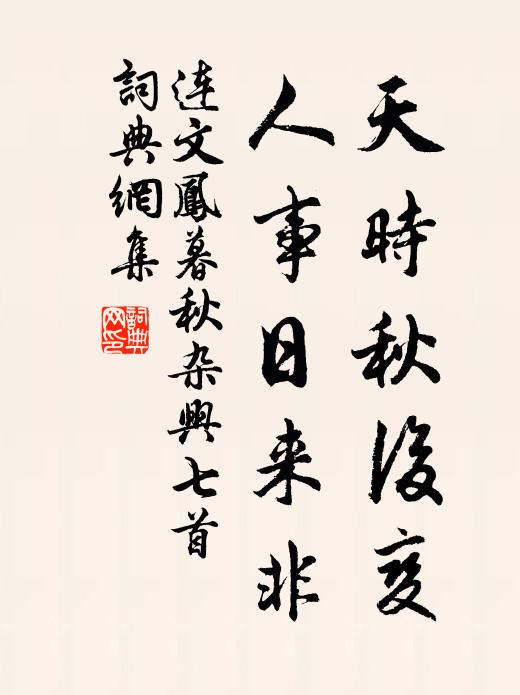 天時秋後变
人事日来非
連文鳳暮秋杂興七首
詞典網集
詞典网印